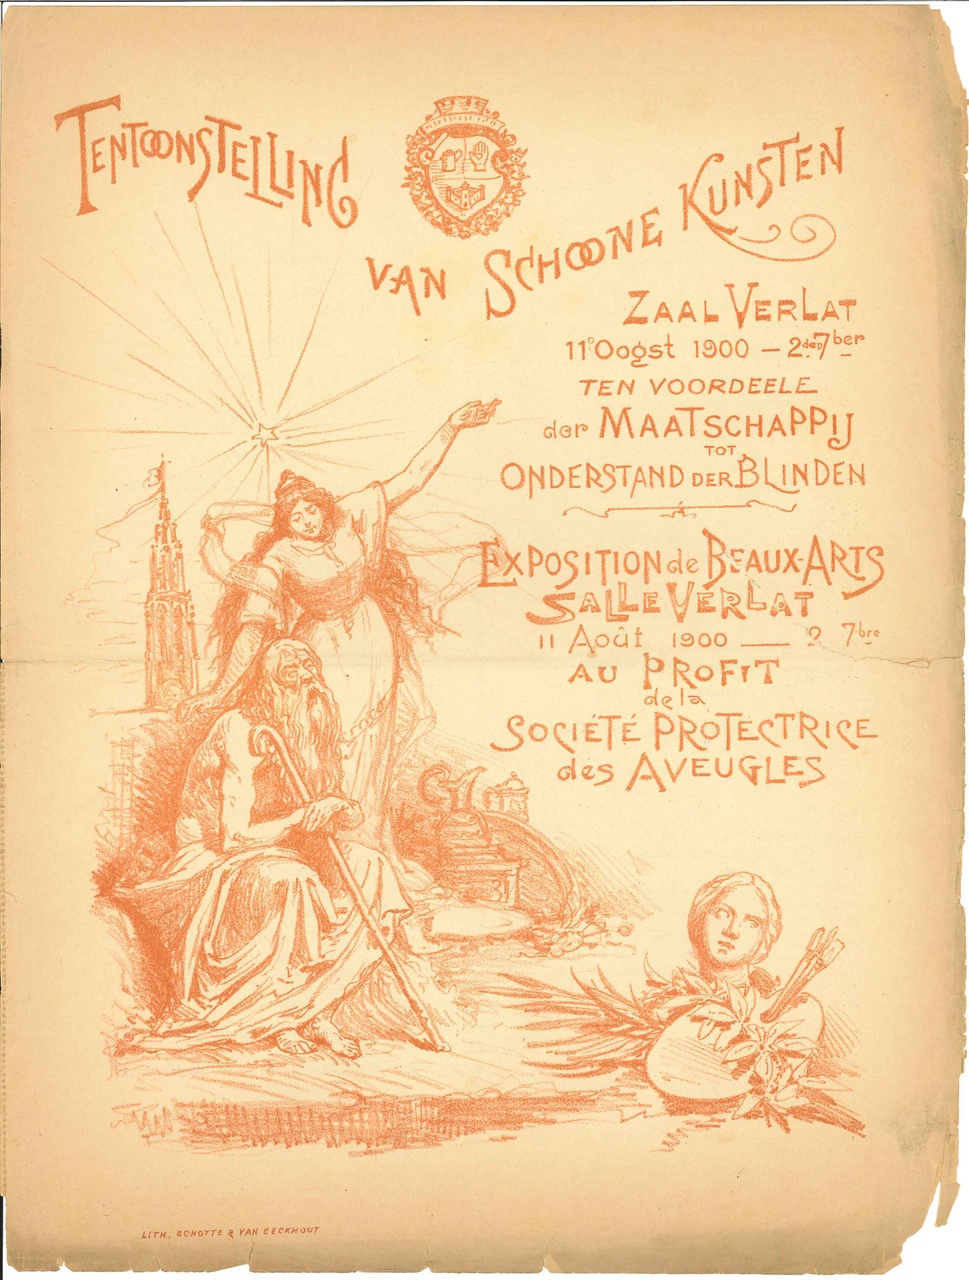 TENTOONSTELLING
VAN SCHOONE KUNSTEN
ZAAL VERLAT
11 Oogst 1900 — 2den 7ber
TEN VOORDEELE
der MAATSCHAPPIJ
TOT
ONDERSTAND DER BLINDEN
EXPOSITION de BEAUX-ARTS
SALLE VERLAT
11 Août 1900 — 2 7bre
AU PROFIT
de la
SOCIÉTÉ PROTECTRICE
des AVEUGLES
LITH. SCHOTTE & VAN EECKHOUT